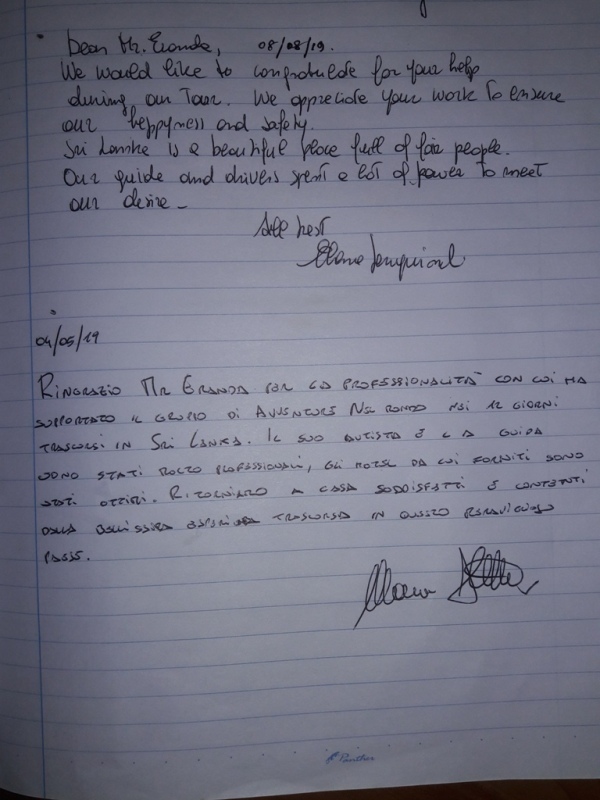 Dear Mr. Eranda, 08/08/19.
We would like to congratulate for your help
during our Tour. We appreciate your work to ensure
our heppyness and safety.
Sri Lanka is a beautiful place full of fair people.
Our guide and drivers spent a lot of power to meet
our desire -
All best
04/05/19
RINGRAZIO MR ERANDA PER LA PROFESSIONALITÀ CON CUI HA
SUPPORTATO IL GRUPPO DI AVVENTURE NEL MONDO NEI 12 GIORNI
TRASCORSI IN SRI LANKA. IL SUO AUTISTA E LA GUIDA
SONO STATI MOLTO PROFESSIONALI, GLI HOTEL DA LUI FORNITI SONO
STATI OTTIMI. RITORNIAMO A CASA SODDISFATTI E CONTENTI
DELLA BELLISSIMA ESPERIENZA TRASCORSA IN QUESTO MERAVIGLIOSO
PAESE.